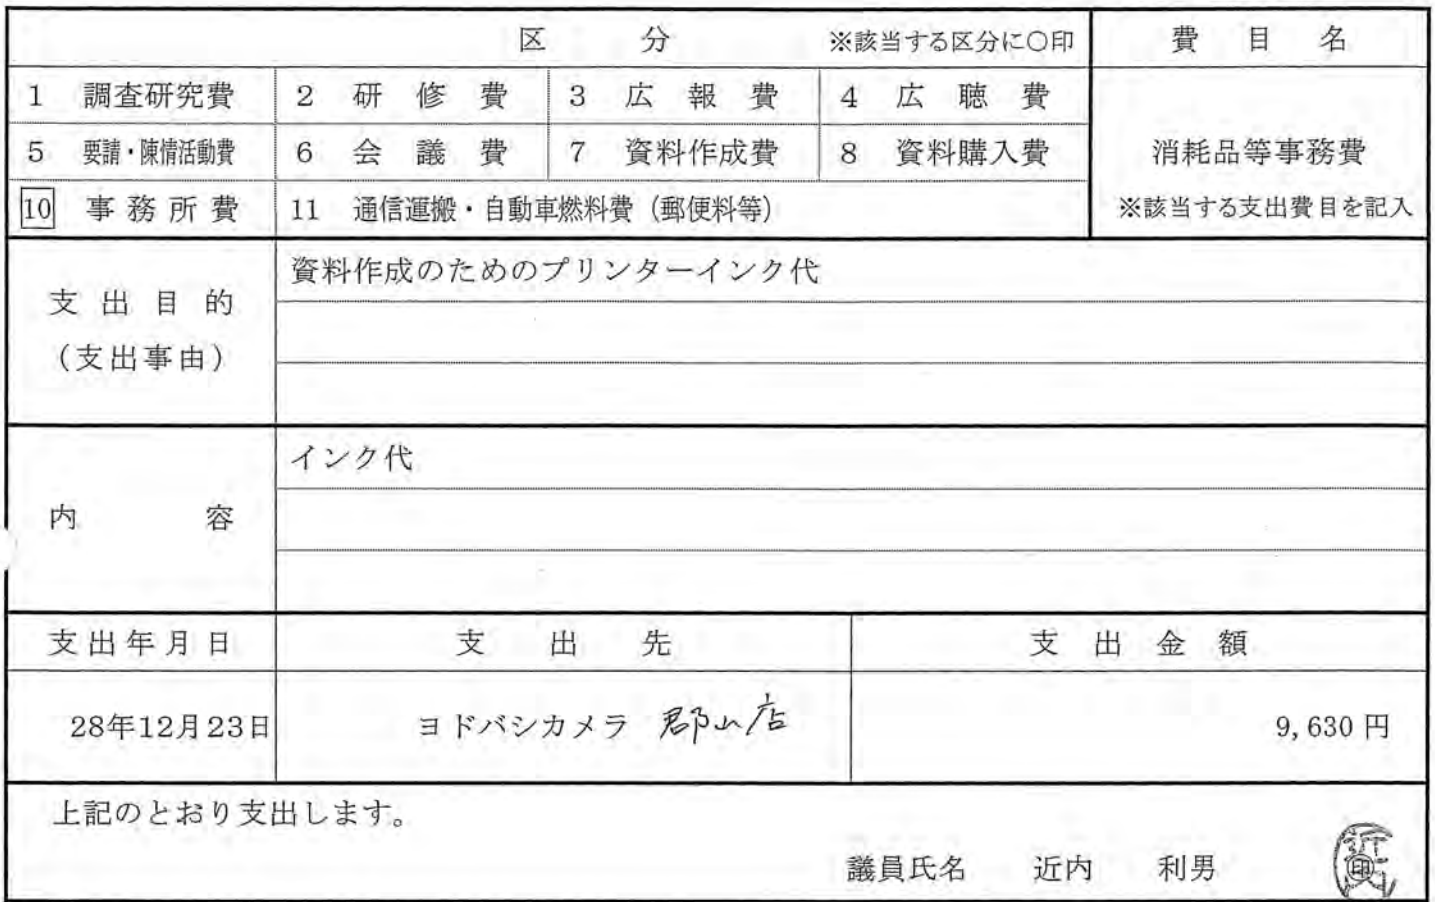 区 分 ※該当する区分に○印 費目名
1 調査研究費 2 研修費 3 広報費 4 広聴費
5 要請・陳情活動費 6 会議費 7 資料作成費 8 資料購入費 消耗品等事務費
10 事務所費 11 通信運搬・自動車燃料費（郵便料等） ※該当する支出費目を記入
支出目的
（支出事由）
資料作成のためのプリンターインク代
内容
インク代
支出年月日 支出先 支出金額
28年12月23日 ヨドバシカメラ 郡山店 9,630円
上記のとおり支出します。
議員氏名 近内 利男 印